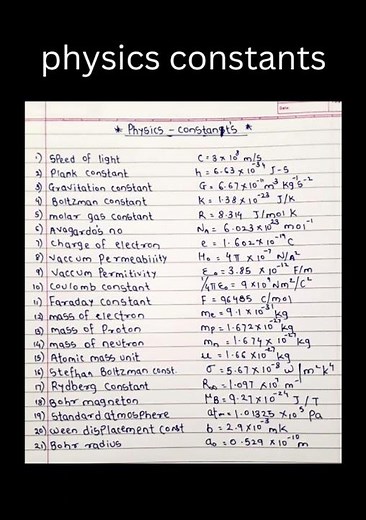 physics constants
Date
* Physics - constant's *
1) Speed of light C = 3 × 10⁸ m/s
2) Plank constant h = 6.63 × 10⁻³⁴ J-S
3) Gravitation constant G = 6.67 × 10⁻¹¹ m³ kg⁻¹ s⁻²
4) Boltzman constant K = 1.38 × 10⁻²³ J/K
5) molar gas constant R = 8.314 J/mol K
6) Avogadro's no Nₐ = 6.023 × 10²³ mol⁻¹
7) charge of electron e = 1.602 × 10⁻¹⁹ C
8) vaccum Permeability H₀ = 4π × 10⁻⁷ N/A²
9) vaccum Permitivity ε₀ = 3.85 × 10⁻¹² F/m
10) Coulomb constant 1/4πε₀ = 9 × 10⁹ Nm²/C²
11) Faraday constant F = 96485 C/mol
12) mass of electron me = 9.1 × 10⁻³¹ kg
13) mass of Proton mp = 1.672 × 10⁻²⁷ kg
14) mass of neutron mn = 1.674 × 10⁻²⁷ kg
15) Atomic mass unit u = 1.66 × 10⁻²⁷ kg
16) Stefhan Boltzman const. σ = 5.67 × 10⁻⁸ w/m²k⁴
17) Rydberg Constant R∞ = 1.097 × 10⁷ m⁻¹
18) Bohr magneton μB = 9.27 × 10⁻²⁴ J/T
19) Standard atmosphere atm = 1.01325 × 10⁵ Pa
20) ween displacement const b = 2.9 × 10⁻³ mk
21) Bohr radius a₀ = 0.529 × 10⁻¹⁰ m